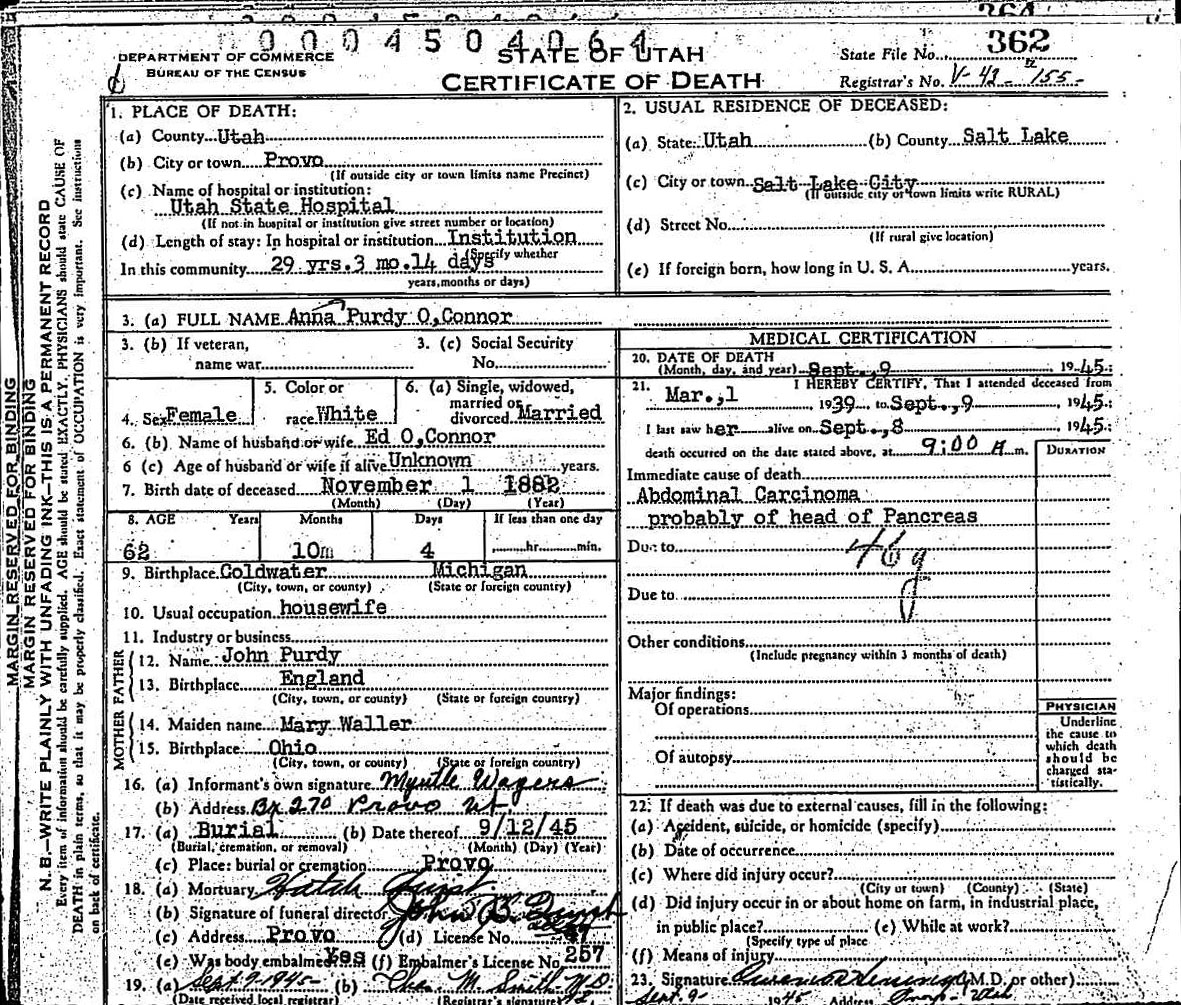 364
0 0 0 4 5 0 4 0 6 4
DEPARTMENT OF COMMERCE
BUREAU OF THE CENSUS
STATE OF UTAH
CERTIFICATE OF DEATH
State File No. 362
Registrar's No. V-43-155-
MARGIN RESERVED FOR BINDING
MARGIN RESERVED FOR BINDING
N. B.—WRITE PLAINLY WITH UNFADING INK—THIS IS A PERMANENT RECORD
Every item of information should be carefully supplied. AGE should be stated EXACTLY. PHYSICIANS should state CAUSE OF
DEATH in plain terms, so that it may be properly classified. Exact statement of OCCUPATION is very important. See instructions
on back of certificate.
1. PLACE OF DEATH:
(a) County Utah
(b) City or town Provo
(If outside city or town limits name Precinct)
(c) Name of hospital or institution:
Utah State Hospital
(If not in hospital or institution give street number or location)
(d) Length of stay: In hospital or institution Institution
(Specify whether
In this community 29 yrs.3 mo.14 days
years, months or days)
2. USUAL RESIDENCE OF DECEASED:
(a) State Utah (b) County Salt Lake
(c) City or town Salt Lake City
(If outside city or town limits write RURAL)
(d) Street No.
(If rural give location)
(e) If foreign born, how long in U. S. A. years.
3. (a) FULL NAME Anna Purdy O,Connor
3. (b) If veteran,
name war
3. (c) Social Security
No.
4. Sex Female
5. Color or
race White
6. (a) Single, widowed,
married or
divorced Married
6. (b) Name of husband or wife Ed O,Connor
6 (c) Age of husband or wife if alive Unknown years.
7. Birth date of deceased November 1 1882
(Month) (Day) (Year)
8. AGE Years Months Days If less than one day
62 10m 4 hr. min.
9. Birthplace Coldwater Michigan
(City, town, or county) (State or foreign country)
10. Usual occupation housewife
11. Industry or business
FATHER
12. Name John Purdy
13. Birthplace England
(City, town, or county) (State or foreign country)
MOTHER
14. Maiden name Mary Waller
15. Birthplace Ohio
(City, town, or county) (State or foreign country)
16. (a) Informant's own signature Myrtle Wagers
(b) Address Bx 270 Provo Ut
17. (a) Burial (b) Date thereof 9/12/45
(Burial, cremation, or removal) (Month) (Day) (Year)
(c) Place: burial or cremation Provo
18. (a) Mortuary
(b) Signature of funeral director John
(c) Address Provo (d) License No.
(e) Was body embalmed Yes (f) Embalmer's License No. 257
19. (a) Sept 9-1945- (b) Chas M. Smith M.D.
(Date received local registrar) (Registrar's signature)
MEDICAL CERTIFICATION
20. DATE OF DEATH
(Month, day, and year) Sept.,9 1945
21. I HEREBY CERTIFY, That I attended deceased from
Mar.,1 1939 to Sept.,9 1945
I last saw her alive on Sept.,8 1945
death occurred on the date stated above, at 9:00 A m.
DURATION
Immediate cause of death
Abdominal Carcinoma
probably of head of Pancreas
Due to
46g
Due to
Other conditions
(Include pregnancy within 3 months of death)
Major findings:
Of operations
Of autopsy
PHYSICIAN
Underline
the cause to
which death
should be
charged sta-
tistically.
22. If death was due to external causes, fill in the following:
(a) Accident, suicide, or homicide (specify)
(b) Date of occurrence
(c) Where did injury occur?
(City or town) (County) (State)
(d) Did injury occur in or about home on farm, in industrial place,
in public place? (e) While at work?
(Specify type of place
(f) Means of injury
23. Signature (M.D. or other)
Sept 9- 1945 Address Provo-Utah